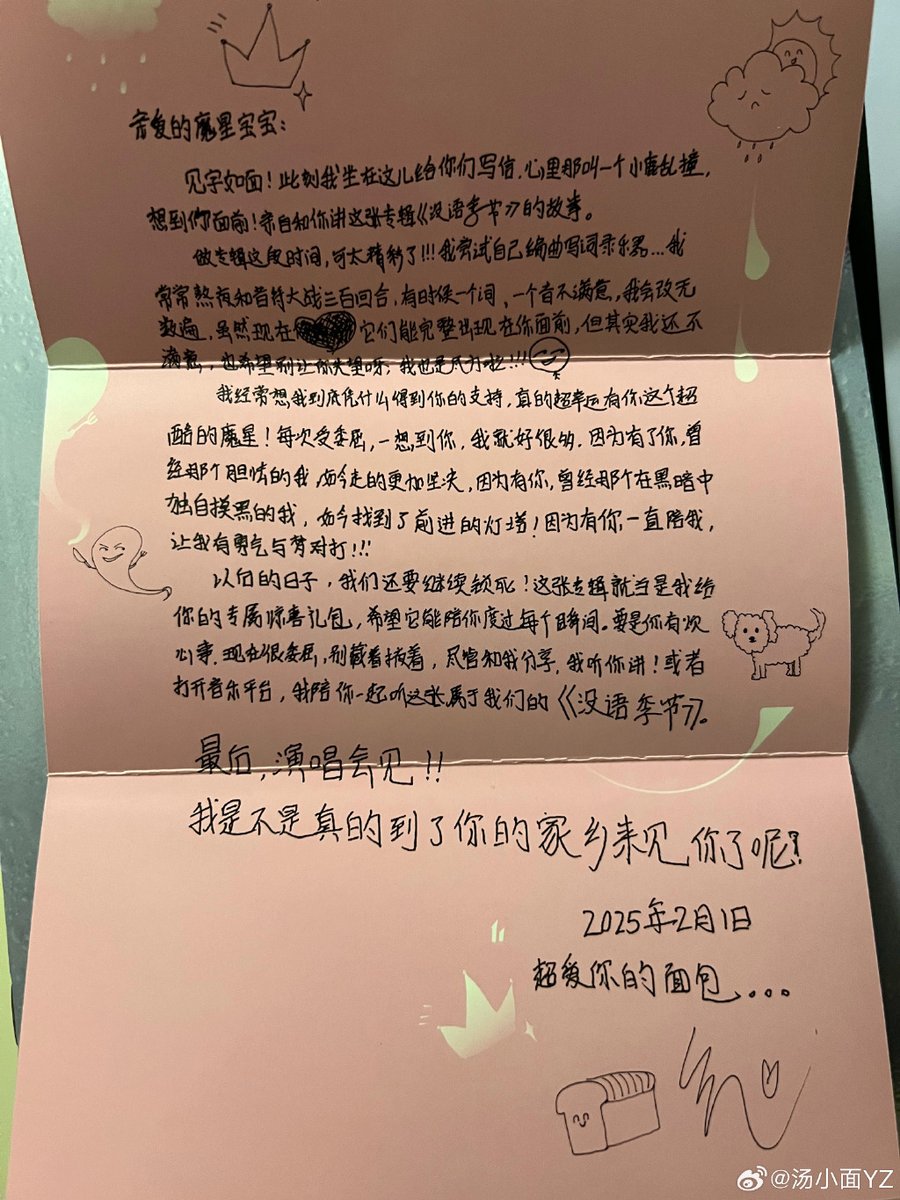 亲爱的魔星宝宝：
见字如面！此刻我坐在这儿给你们写信，心里那叫一个小鹿乱撞，
想到你面前！亲自和你讲这张专辑《汉语季节》的故事。
做专辑这段时间，可太精彩了!!!我尝试自己编曲写词录乐器...我
常常熬夜和音符大战三百回合，有时候一个词，一个音不满意，我会改无
数遍，虽然现在它们能完整出现在你面前，但其实我还不
满意，也希望别让你失望呀，我也是尽力啦!!!
我经常想我到底凭什么得到你的支持，真的超幸运有你这个超
酷的魔星！每次受委屈，一想到你，我就好很多。因为有了你，曾
经那个胆怯的我，如今走的更加坚决，因为有你，曾经那个在黑暗中
独自摸黑的我，如今找到了前进的灯塔！因为有你一直陪我，
让我有勇气与梦对打!!!
以后的日子，我们还要继续锁死！这张专辑就当是我给
你的专属惊喜礼包，希望它能陪你度过每个瞬间。要是你有
心事，现在很委屈，别藏着掖着，尽管和我分享，我听你讲！或者
打开音乐平台，我陪你一起听这张属于我们的《汉语季节》。
最后，演唱会见!!
我是不是真的到了你的家乡来见你了呢?!
2025年2月1日
超爱你的面包...
@汤小面YZ